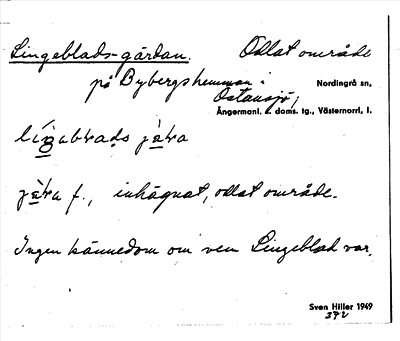 Lingeblads-gärdan. Odlat område
på Bybergshemman i Nordingrå sn,
Östansjö,
Ångermanl. s. doms. tg., Västernorrl, l.
gæ̀ra f., inhägnat, odlat område.
Ingen kännedom om vem Lingeblad var.
Sven Hiller 1949
372